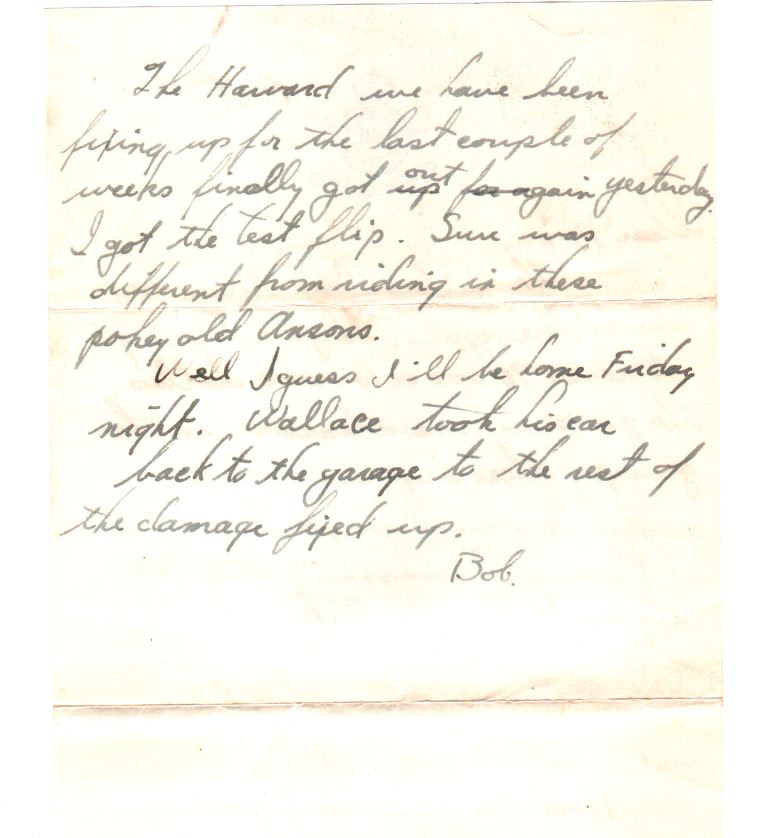 The Harvard we have been
fixing up for the last couple of
weeks finally got out up for again yesterday.
I got the test flip. Sure was
different from riding in these
pokey old Ansons.
Well I guess I'll be home Friday
night. Wallace took his car
back to the garage to the rest of
the damage fixed up.
Bob.